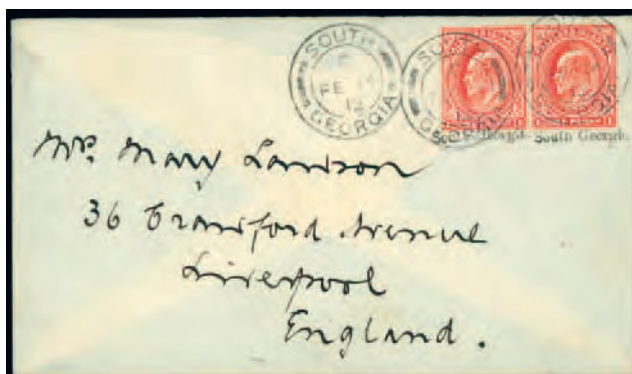 SOUTH
FE 14
12
GEORGIA
SOUTH
GEORGIA
South Georgia.
Mrs. Mary Lawson
36 Crawford Avenue
Liverpool
England.